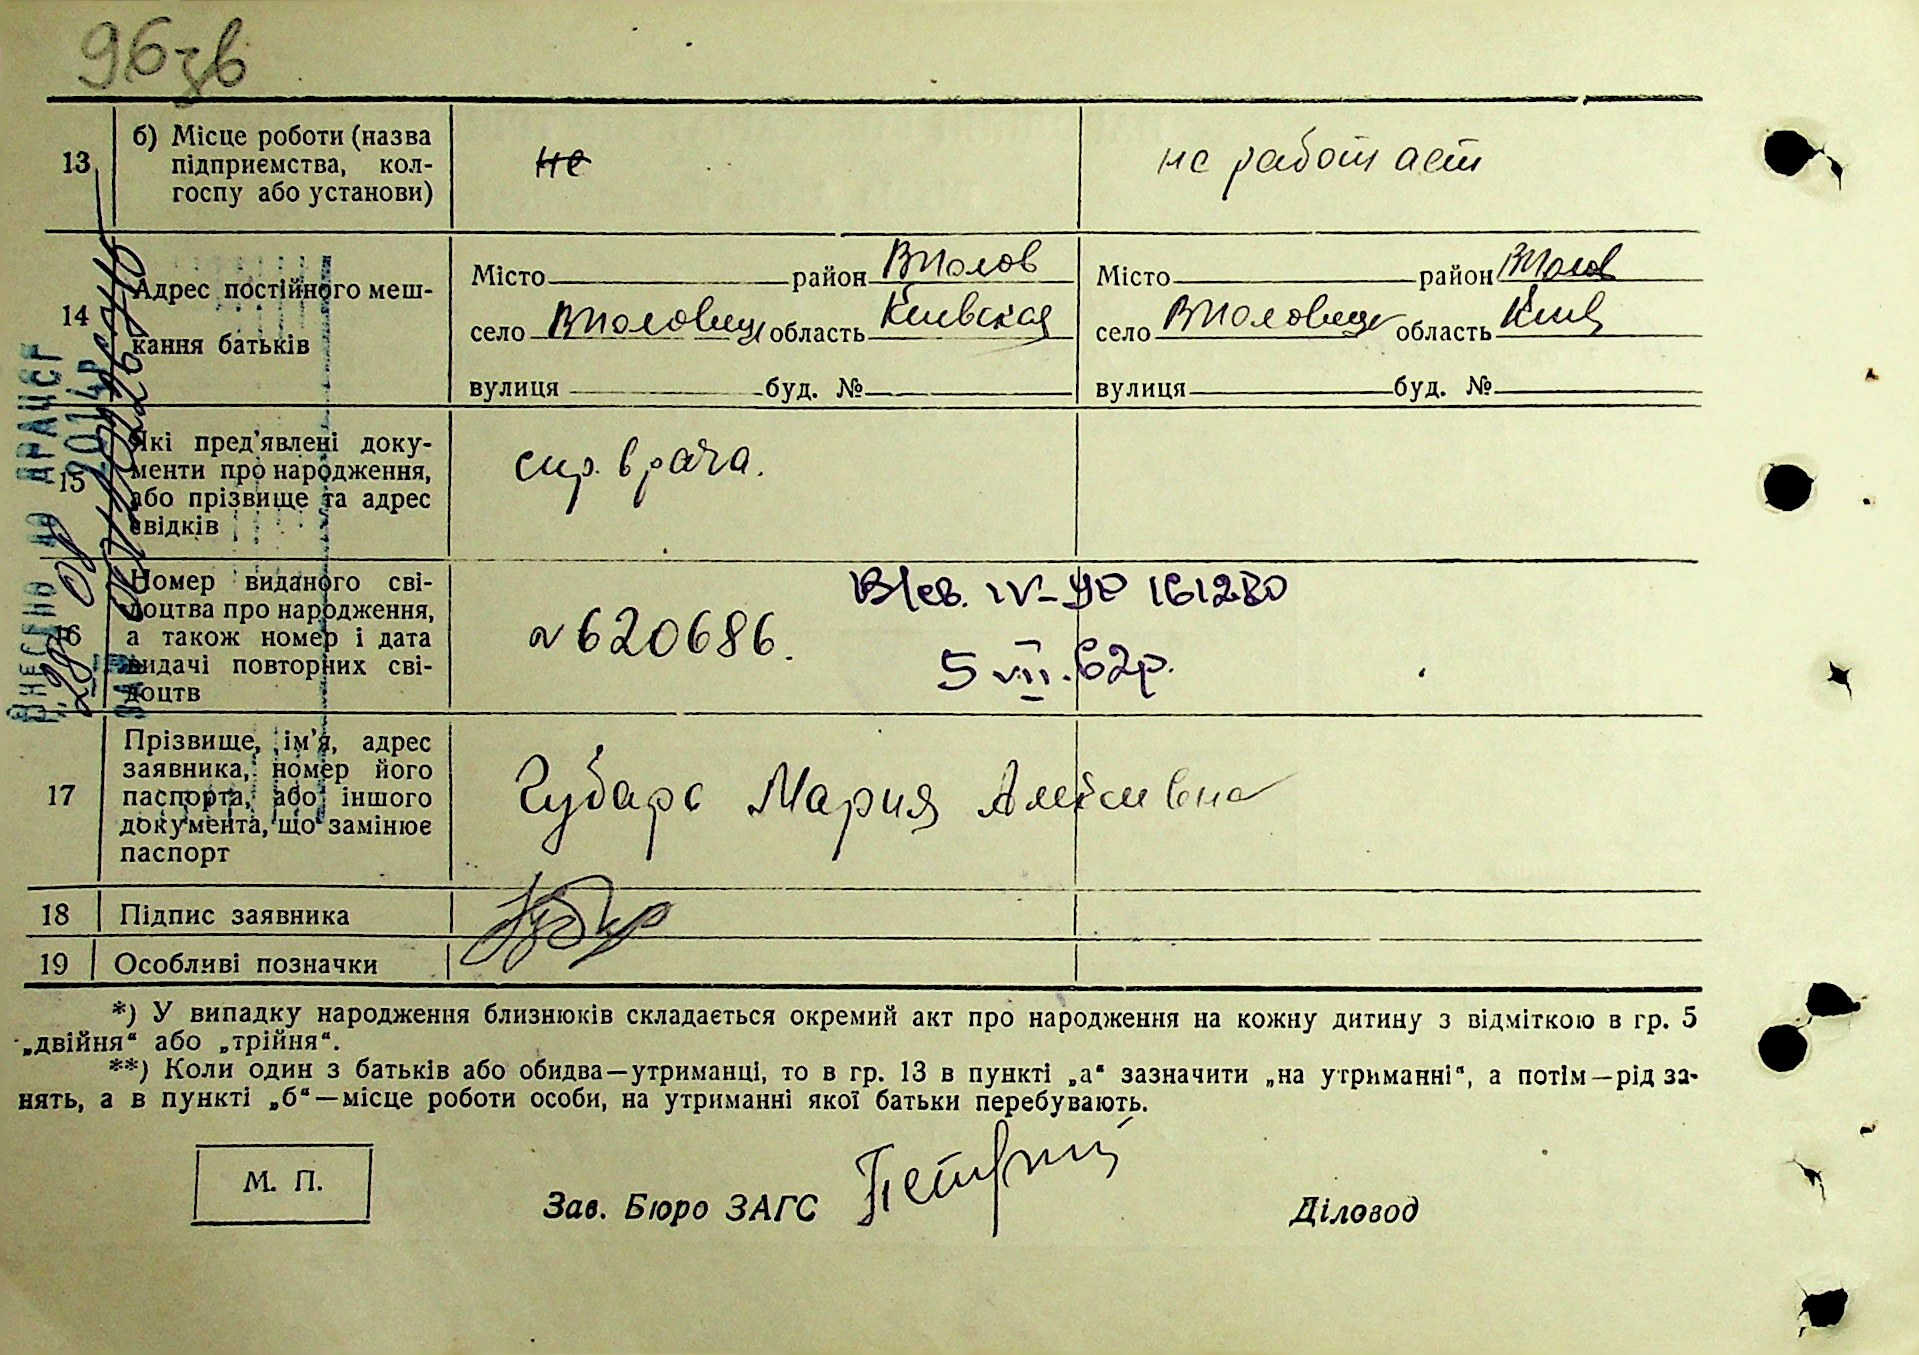 96зв
13 б) Місце роботи (назва
підприємства, кол-
госпу або установи)
не
не работает
14 Адрес постійного меш-
кання батьків
Місто район ВПолов
село ВПоловецк область Киевская
вулиця буд. №
Місто район ВПолов
село ВПоловецк область Киев
вулиця буд. №
15 Які пред'явлені доку-
менти про народження,
або прізвище та адрес
свідків
спр. врача.
16 Номер виданого сві-
доцтва про народження,
а також номер і дата
видачі повторних сві-
доцтв
№ 620686.
161280
5 VII. 62р.
17 Прізвище, ім'я, адрес
заявника, номер його
паспорта, або іншого
документа, що замінює
паспорт
Губарь Мария
18 Підпис заявника
19 Особливі позначки
ВНЕСЕНО ДО ДРАЦСГ
28 01 2014р
*) У випадку народження близнюків складається окремий акт про народження на кожну дитину з відміткою в гр. 5
„двійня“ або „трійня“.
**) Коли один з батьків або обидва—утриманці, то в гр. 13 в пункті „а“ зазначити „на утриманні“, а потім—рід за-
нять, а в пункті „б“—місце роботи особи, на утриманні якої батьки перебувають.
М. П.
Зав. Бюро ЗАГС
Діловод